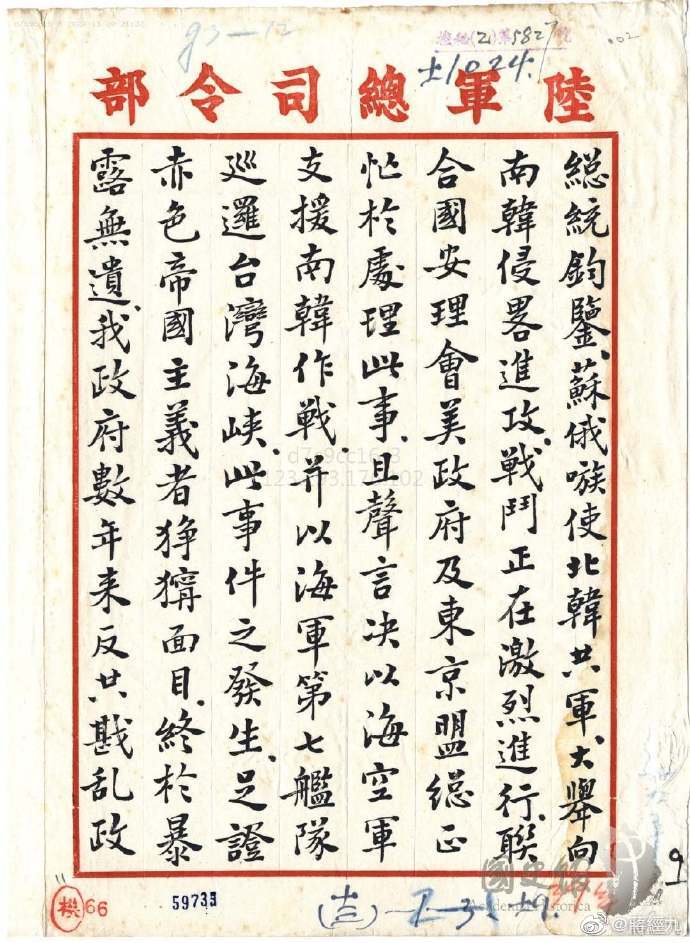 陸軍總司令部
1024
總統鈞鑒、蘇俄嗾使北韓共軍、大舉向
南韓侵畧進攻、戰鬥正在激烈進行、聯
合國安理會美政府及東京盟總正
忙於處理此事、且聲言决以海空軍
支援南韓作戰、并以海軍第七艦隊
巡邏台灣海峽、此事件之發生、足證
赤色帝國主義者猙獰面目、終於暴
露無遺、我政府數年来反共戡乱政
機 66
59735
國史館
Academia Historica
@蔣經九